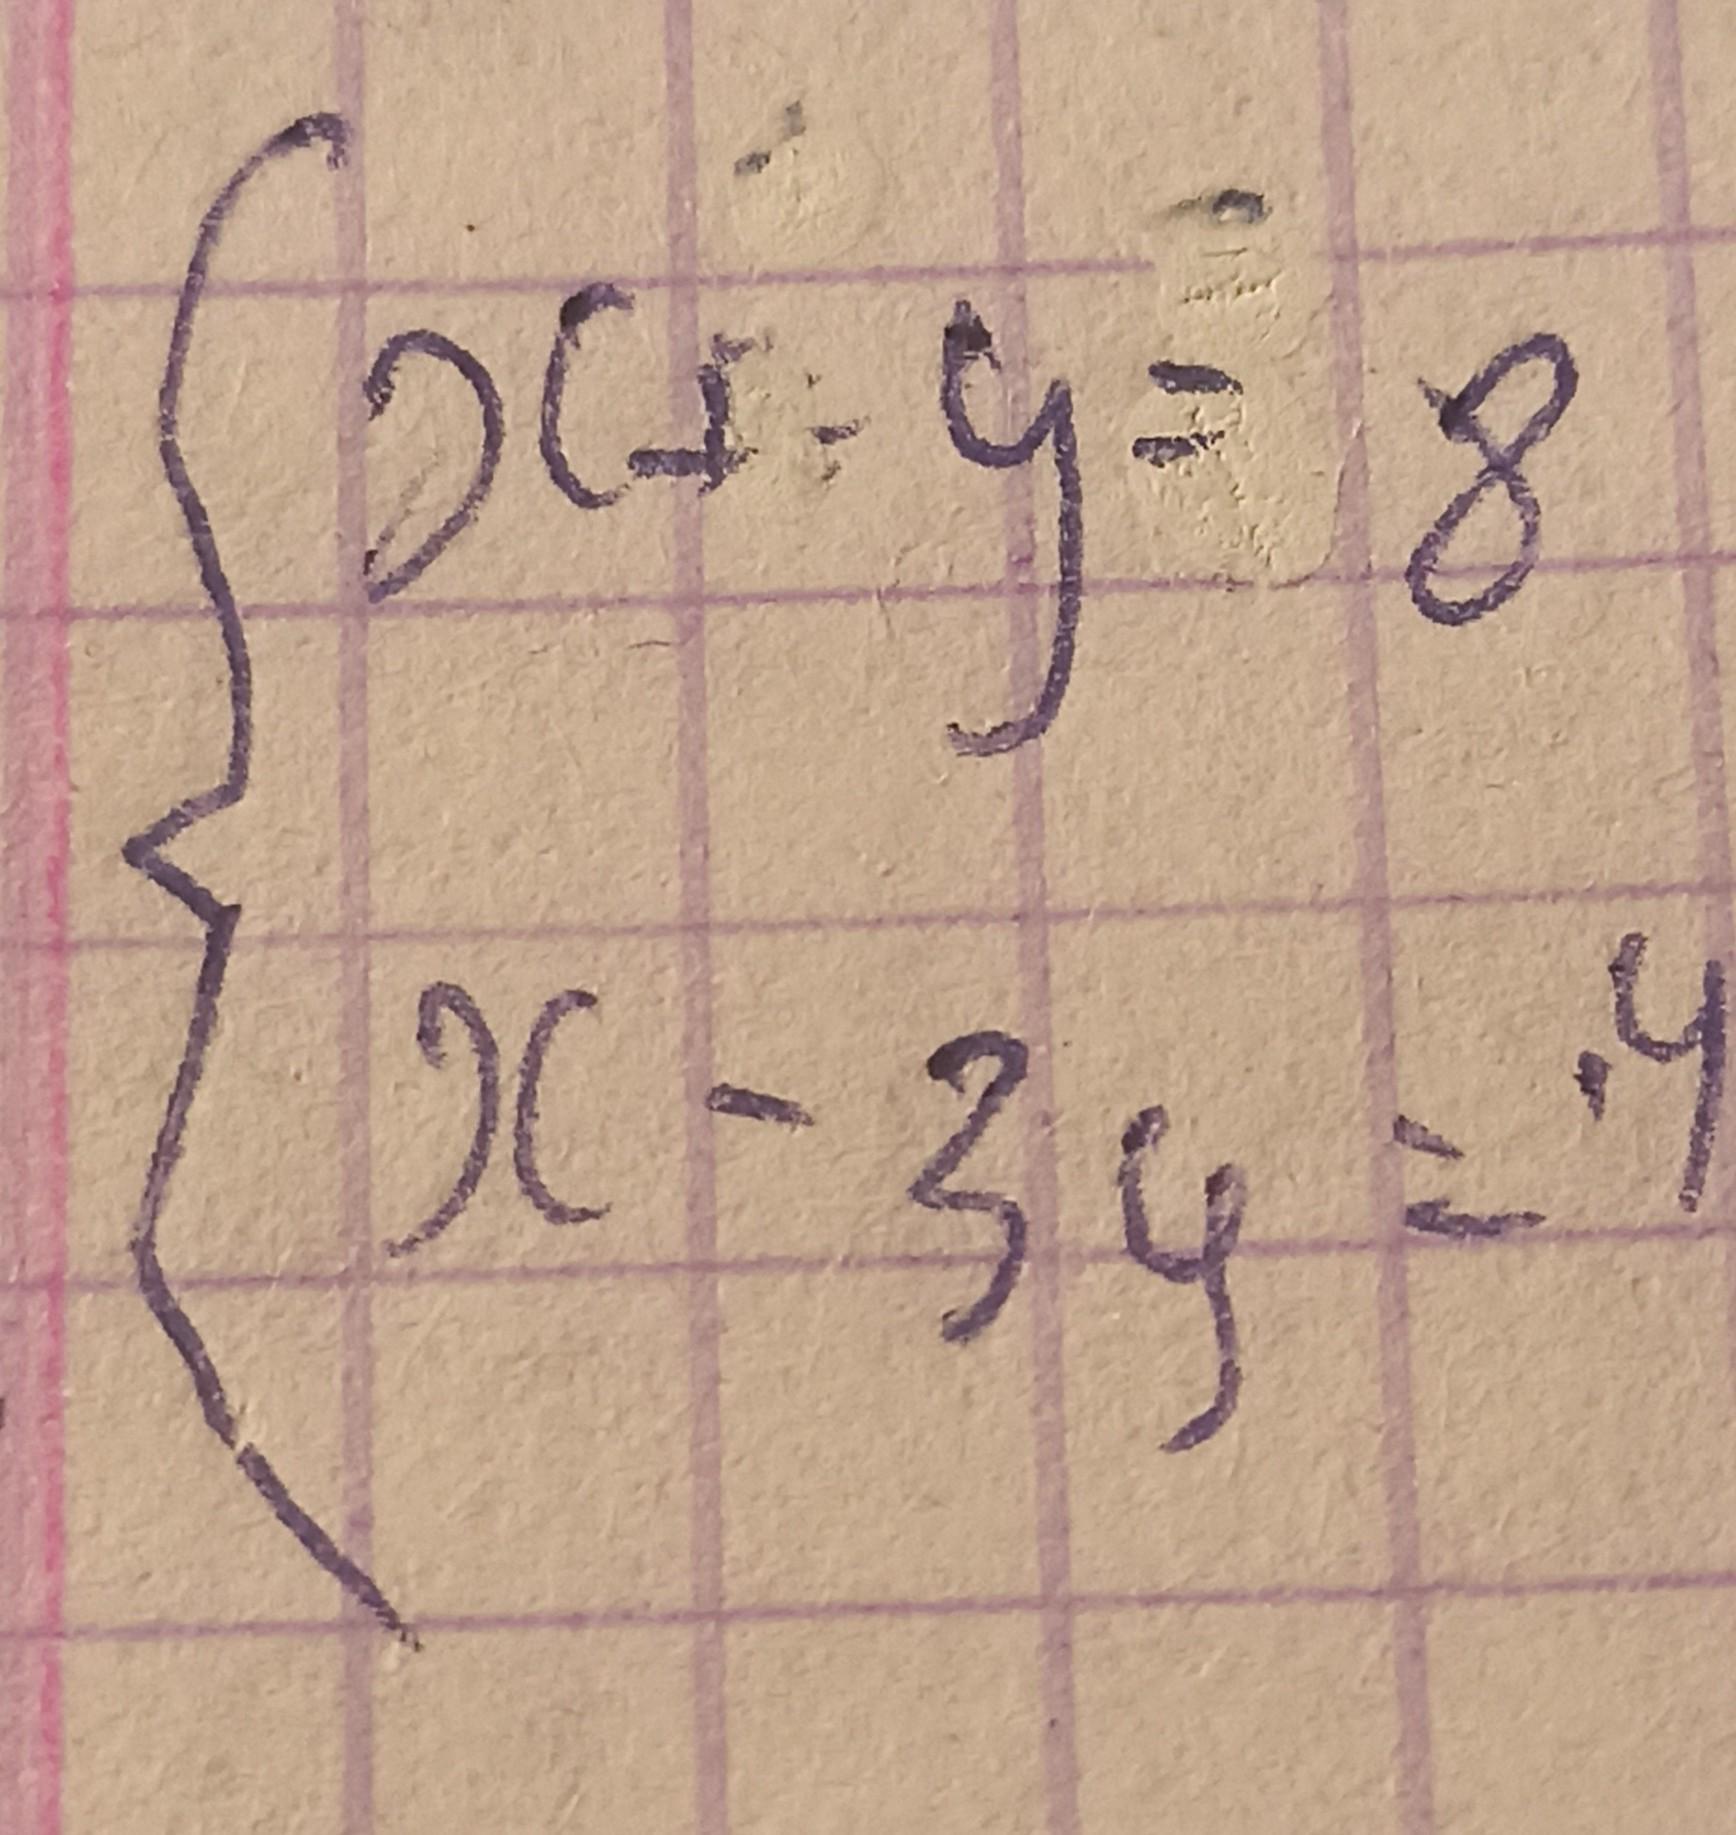 x + y = 8
x - 3y = 4